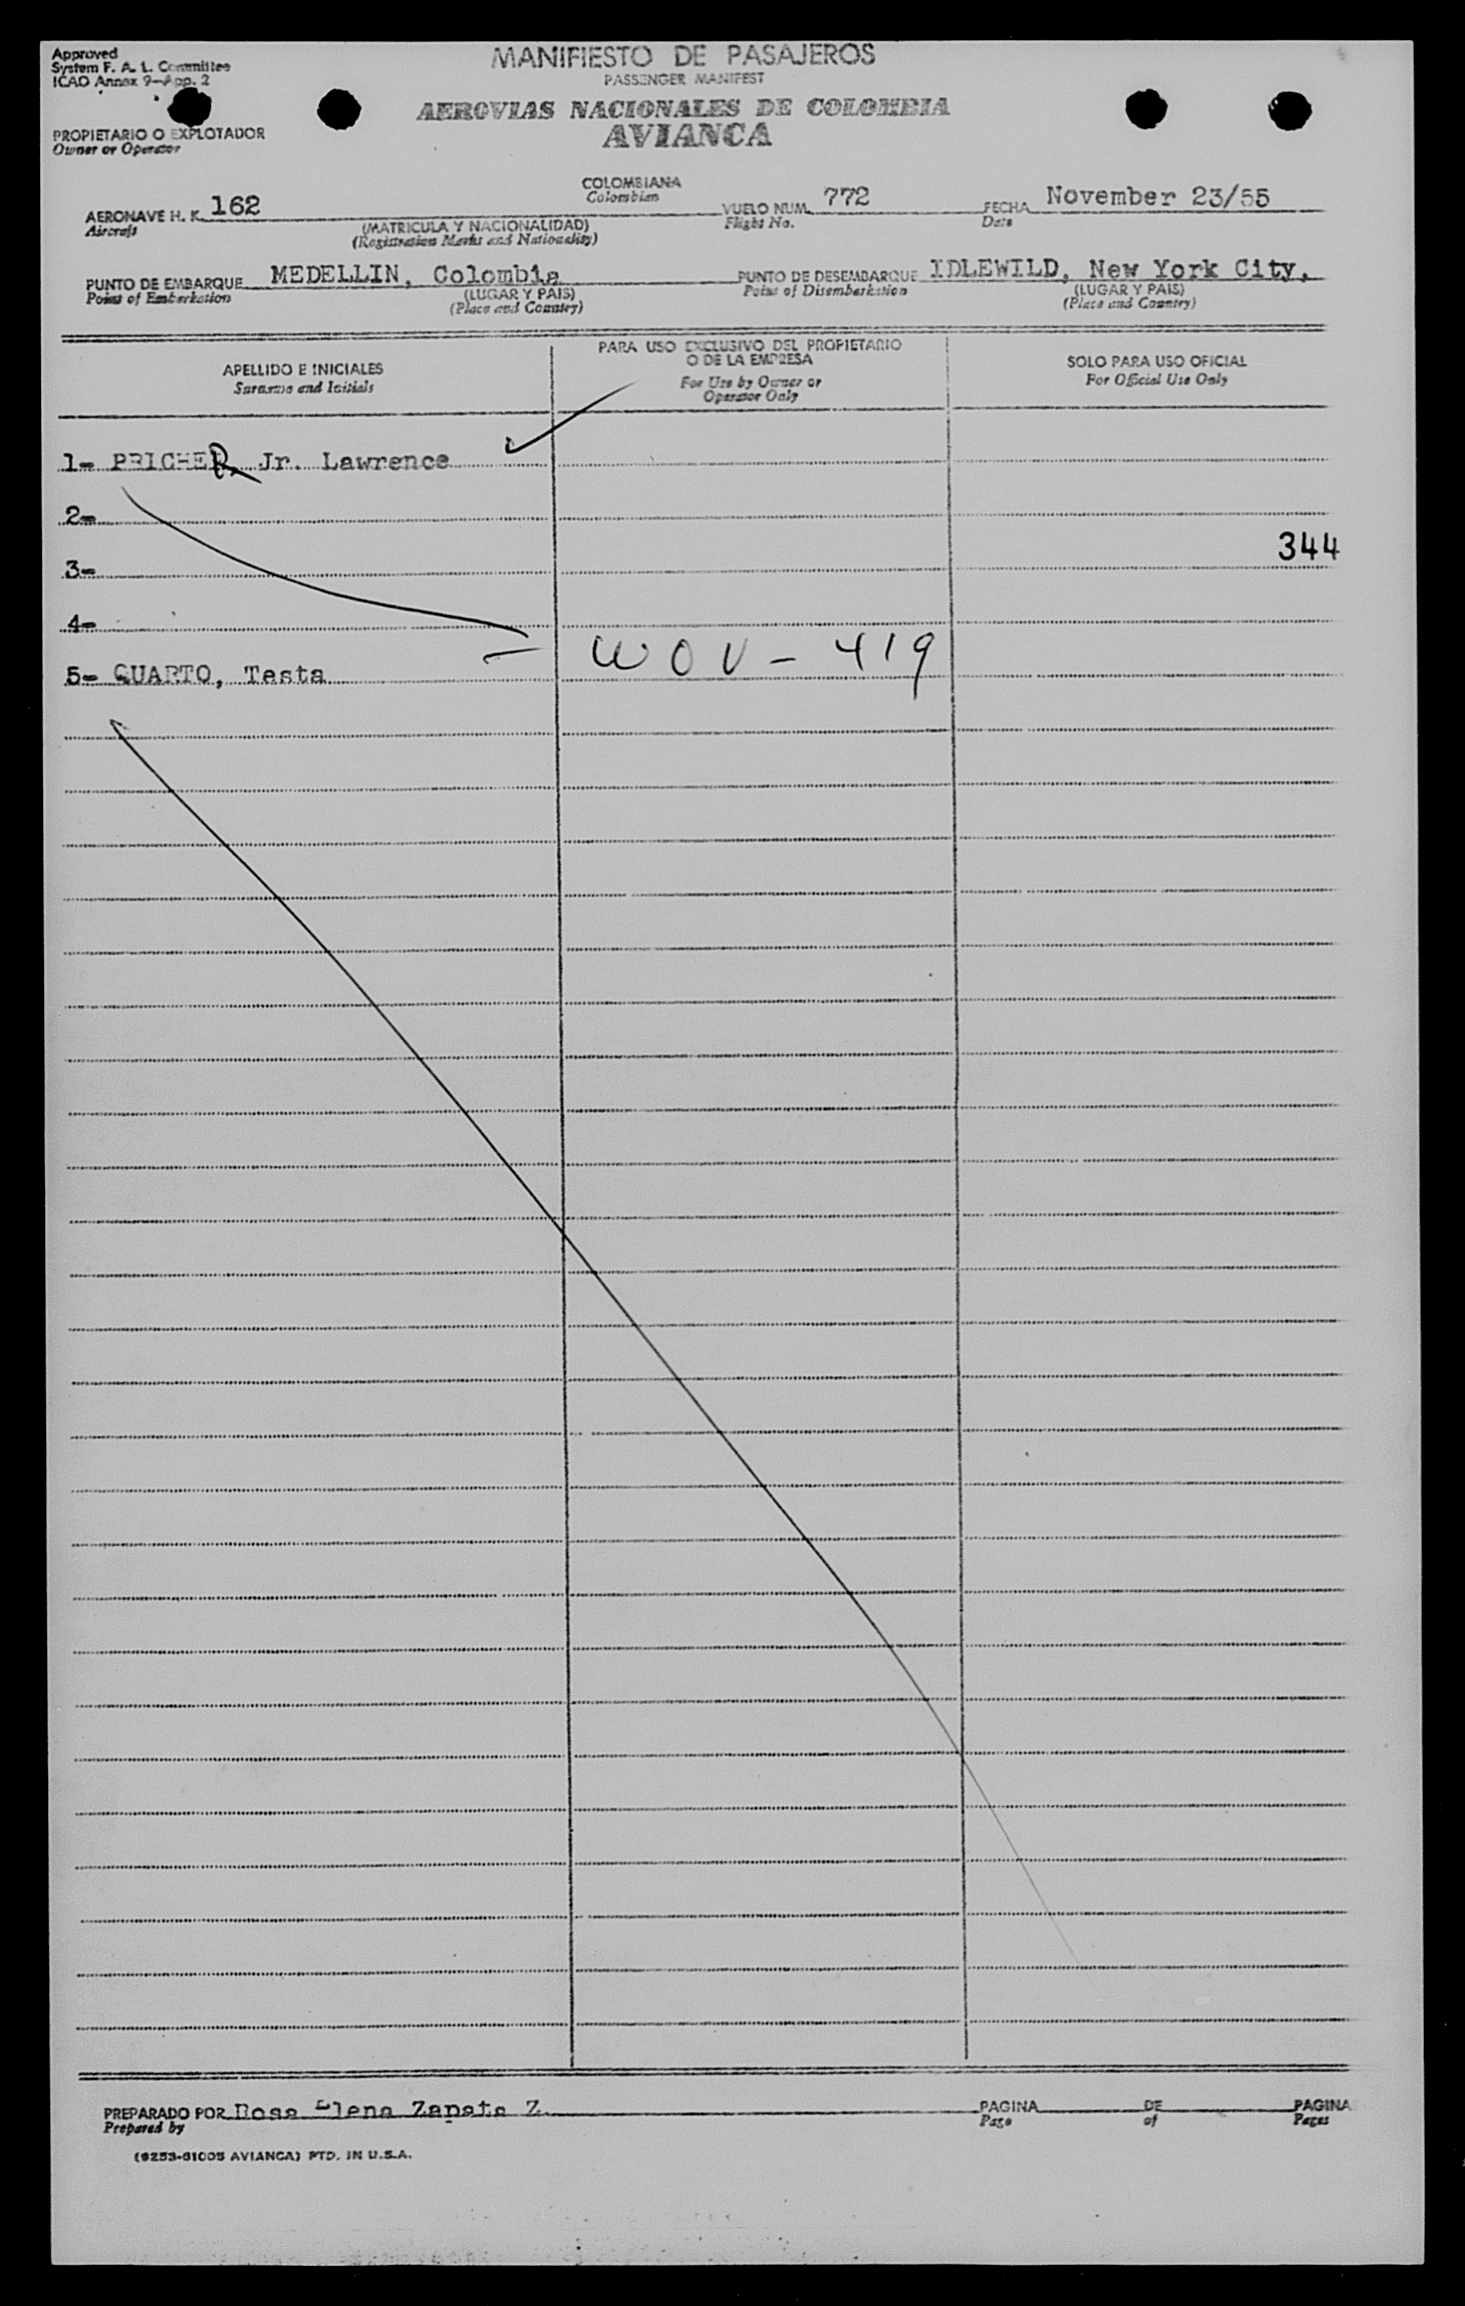 Approved
System F. A. L. Committee
ICAO Annex 9-App. 2
MANIFIESTO DE PASAJEROS
PASSENGER MANIFEST
AEROVIAS NACIONALES DE COLOMBIA
AVIANCA
PROPIETARIO O EXPLOTADOR
Owner or Operator
COLOMBIANA
Colombian
AERONAVE H. K. 162 VUELO NUM. 772 FECHA November 23/55
Aircraft (MATRICULA Y NACIONALIDAD) Flight No. Date
(Registration Marks and Nationality)
PUNTO DE EMBARQUE MEDELLIN, Colombia PUNTO DE DESEMBARQUE IDLEWILD, New York City,
Point of Embarkation (LUGAR Y PAIS) Point of Disembarkation (LUGAR Y PAIS)
(Place and Country) (Place and Country)
APELLIDO E INICIALES
Surname and Initials
PARA USO EXCLUSIVO DEL PROPIETARIO
O DE LA EMPRESA
For Use by Owner or
Operator Only
SOLO PARA USO OFICIAL
For Official Use Only
1- PRICHER Jr. Lawrence
2-
344
3-
4-
5- QUARTO, Testa WOV - 419
PREPARADO POR Rosa Elena Zapata Z. PAGINA DE PAGINA
Prepared by Page of Pages
(9253-61005 AVIANCA) PTD. IN U.S.A.